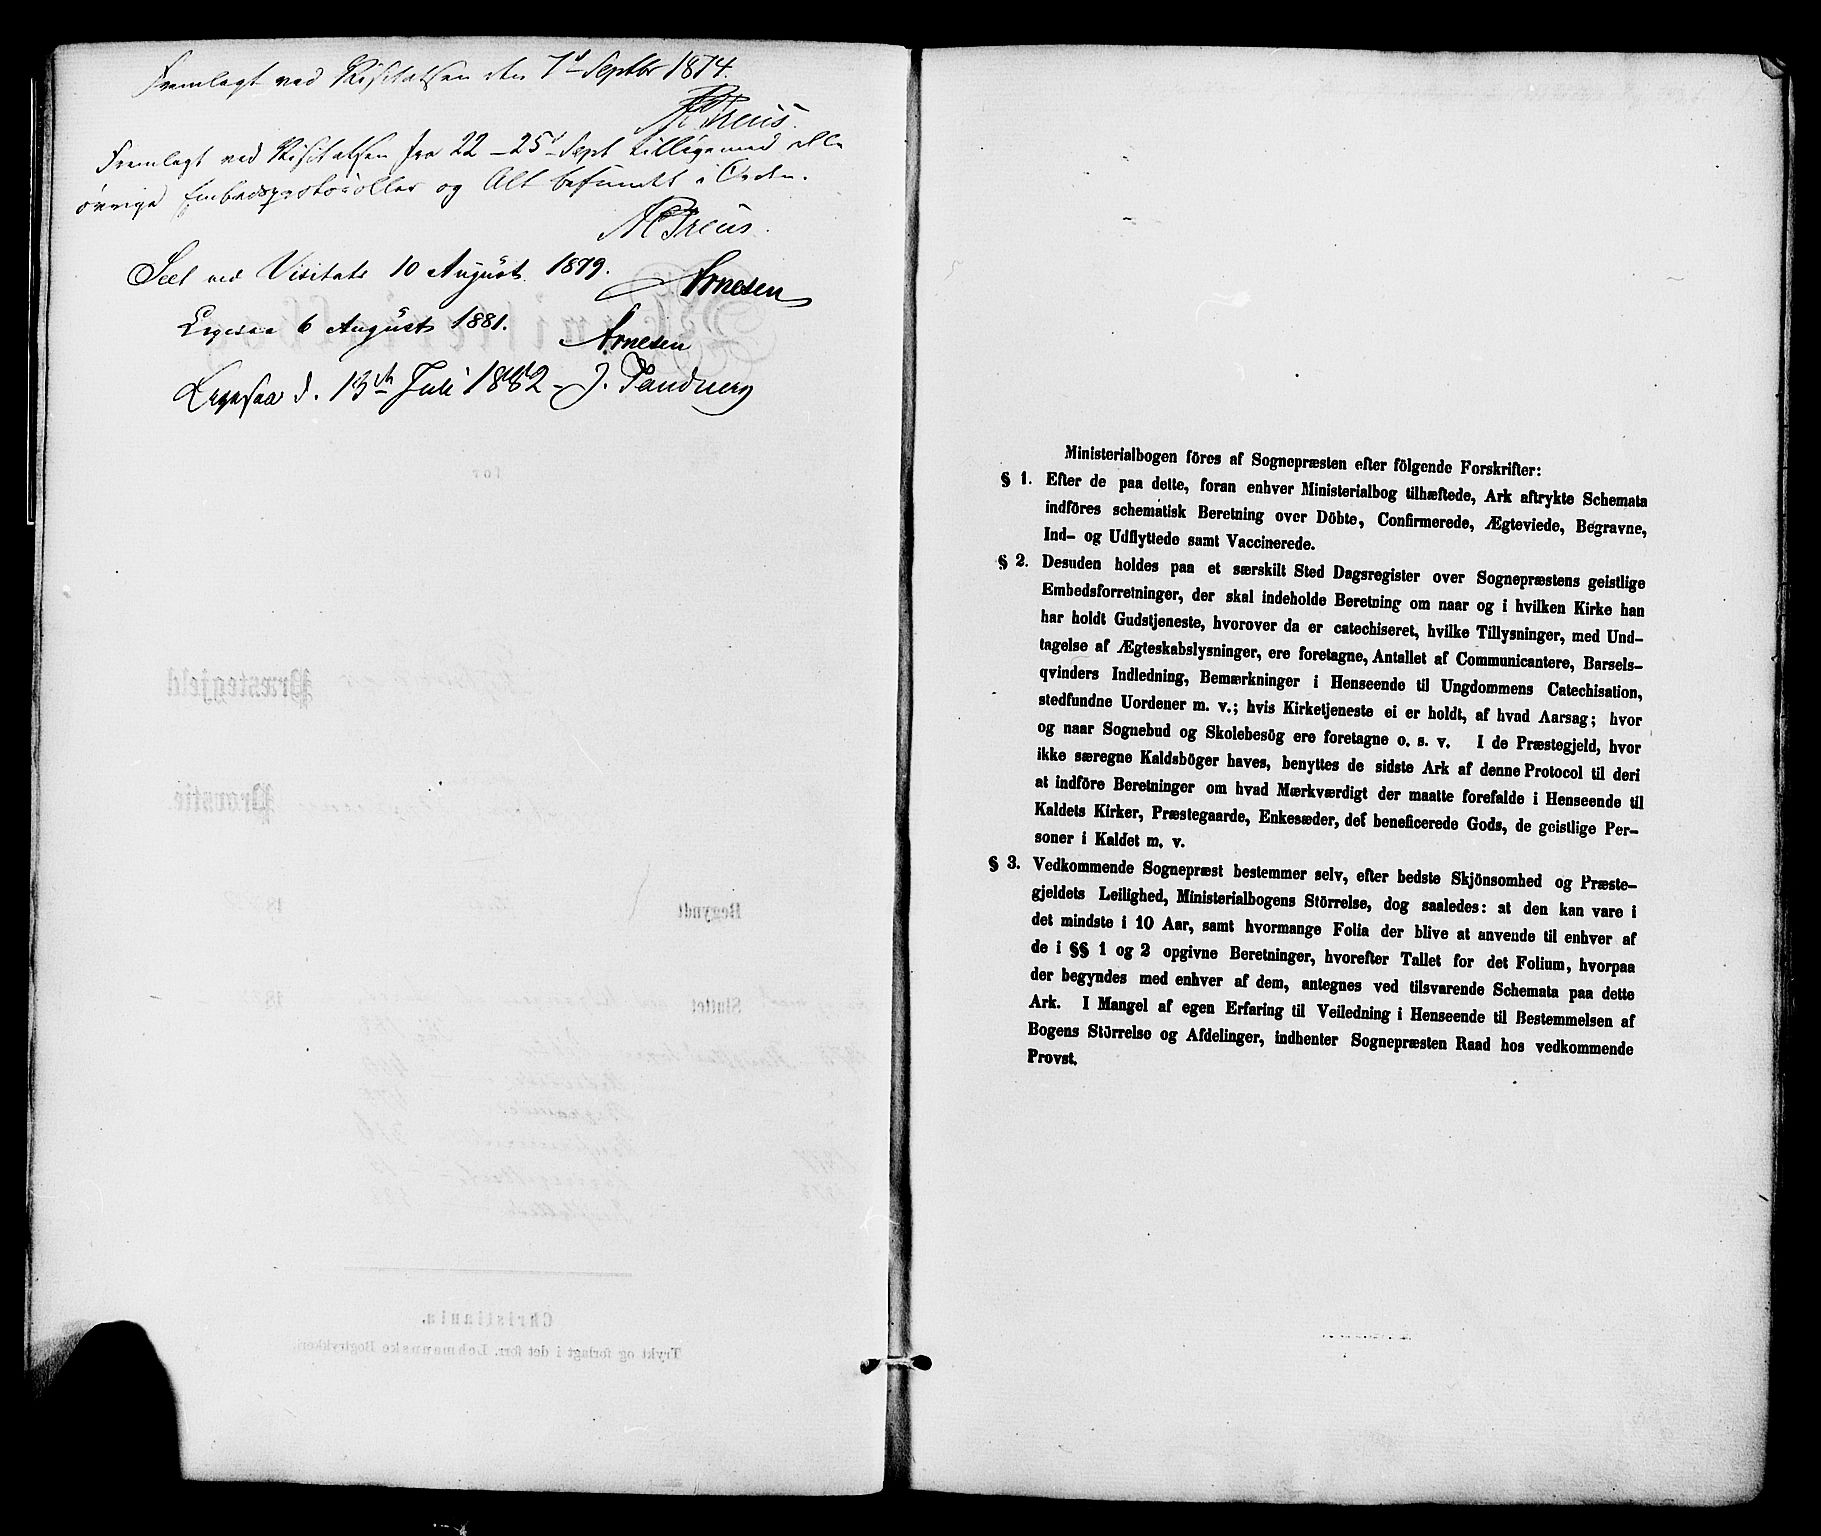 Fremlagt ved Visitatsen den 7d Septbr 1874.
Preus.
Fremlagt ved Visitatsen fra 22-25d Sept tilligemed alle
øvrige Embedsprotokoller og Alt befundet i Orden.
Preus.
Seet ved Visitats 10 August 1879. Arnesen
Ligesaa 6 August 1881. Arnesen
Ligesaa d. 13de Juli 1882 - J. Tandberg
Ministerialbogen föres af Sognepræsten efter fölgende Forskrifter:
§ 1. Efter de paa dette, foran enhver Ministerialbog tilhæftede, Ark aftrykte Schemata
indföres schematisk Beretning over Döbte, Confirmerede, Ægteviede, Begravne,
Ind- og Udflyttede samt Vaccinerede.
§ 2. Desuden holdes paa et særskilt Sted Dagsregister over Sognepræstens geistlige
Embedsforretninger, der skal indeholde Beretning om naar og i hvilken Kirke han
har holdt Gudstjeneste, hvorover da er catechiseret, hvilke Tillysninger, med Und-
tagelse af Ægteskabslysninger, ere foretagne, Antallet af Communicantere, Barsels-
qvinders Indledning, Bemærkninger i Henseende til Ungdommens Catechisation,
stedfundne Uordener m. v.; hvis Kirketjeneste ei er holdt, af hvad Aarsag; hvor
og naar Sognebud og Skolebesög ere foretagne o. s. v. I de Præstegjeld, hvor
ikke særegne Kaldsböger haves, benyttes de sidste Ark af denne Protocol til deri
at indföre Beretninger om hvad Mærkværdigt der maatte forefalde i Henseende til
Kaldets Kirker, Præstegaarde, Enkesæder, det beneficerede Gods, de geistlige Per-
soner i Kaldet m. v.
§ 3. Vedkommende Sognepræst bestemmer selv, efter bedste Skjönsomhed og Præste-
gjeldets Leilighed, Ministerialbogens Störrelse, dog saaledes: at den kan vare i
det mindste i 10 Aar, samt hvormange Folia der blive at anvende til enhver af
de i §§ 1 og 2 opgivne Beretninger, hvorefter Tallet for det Folium, hvorpaa
der begyndes med enhver af dem, antegnes ved tilsvarende Schemata paa dette
Ark. I Mangel af egen Erfaring til Veiledning i Henseende til Bestemmelsen af
Bogens Störrelse og Afdelinger, indhenter Sognepræsten Raad hos vedkommende
Provst.